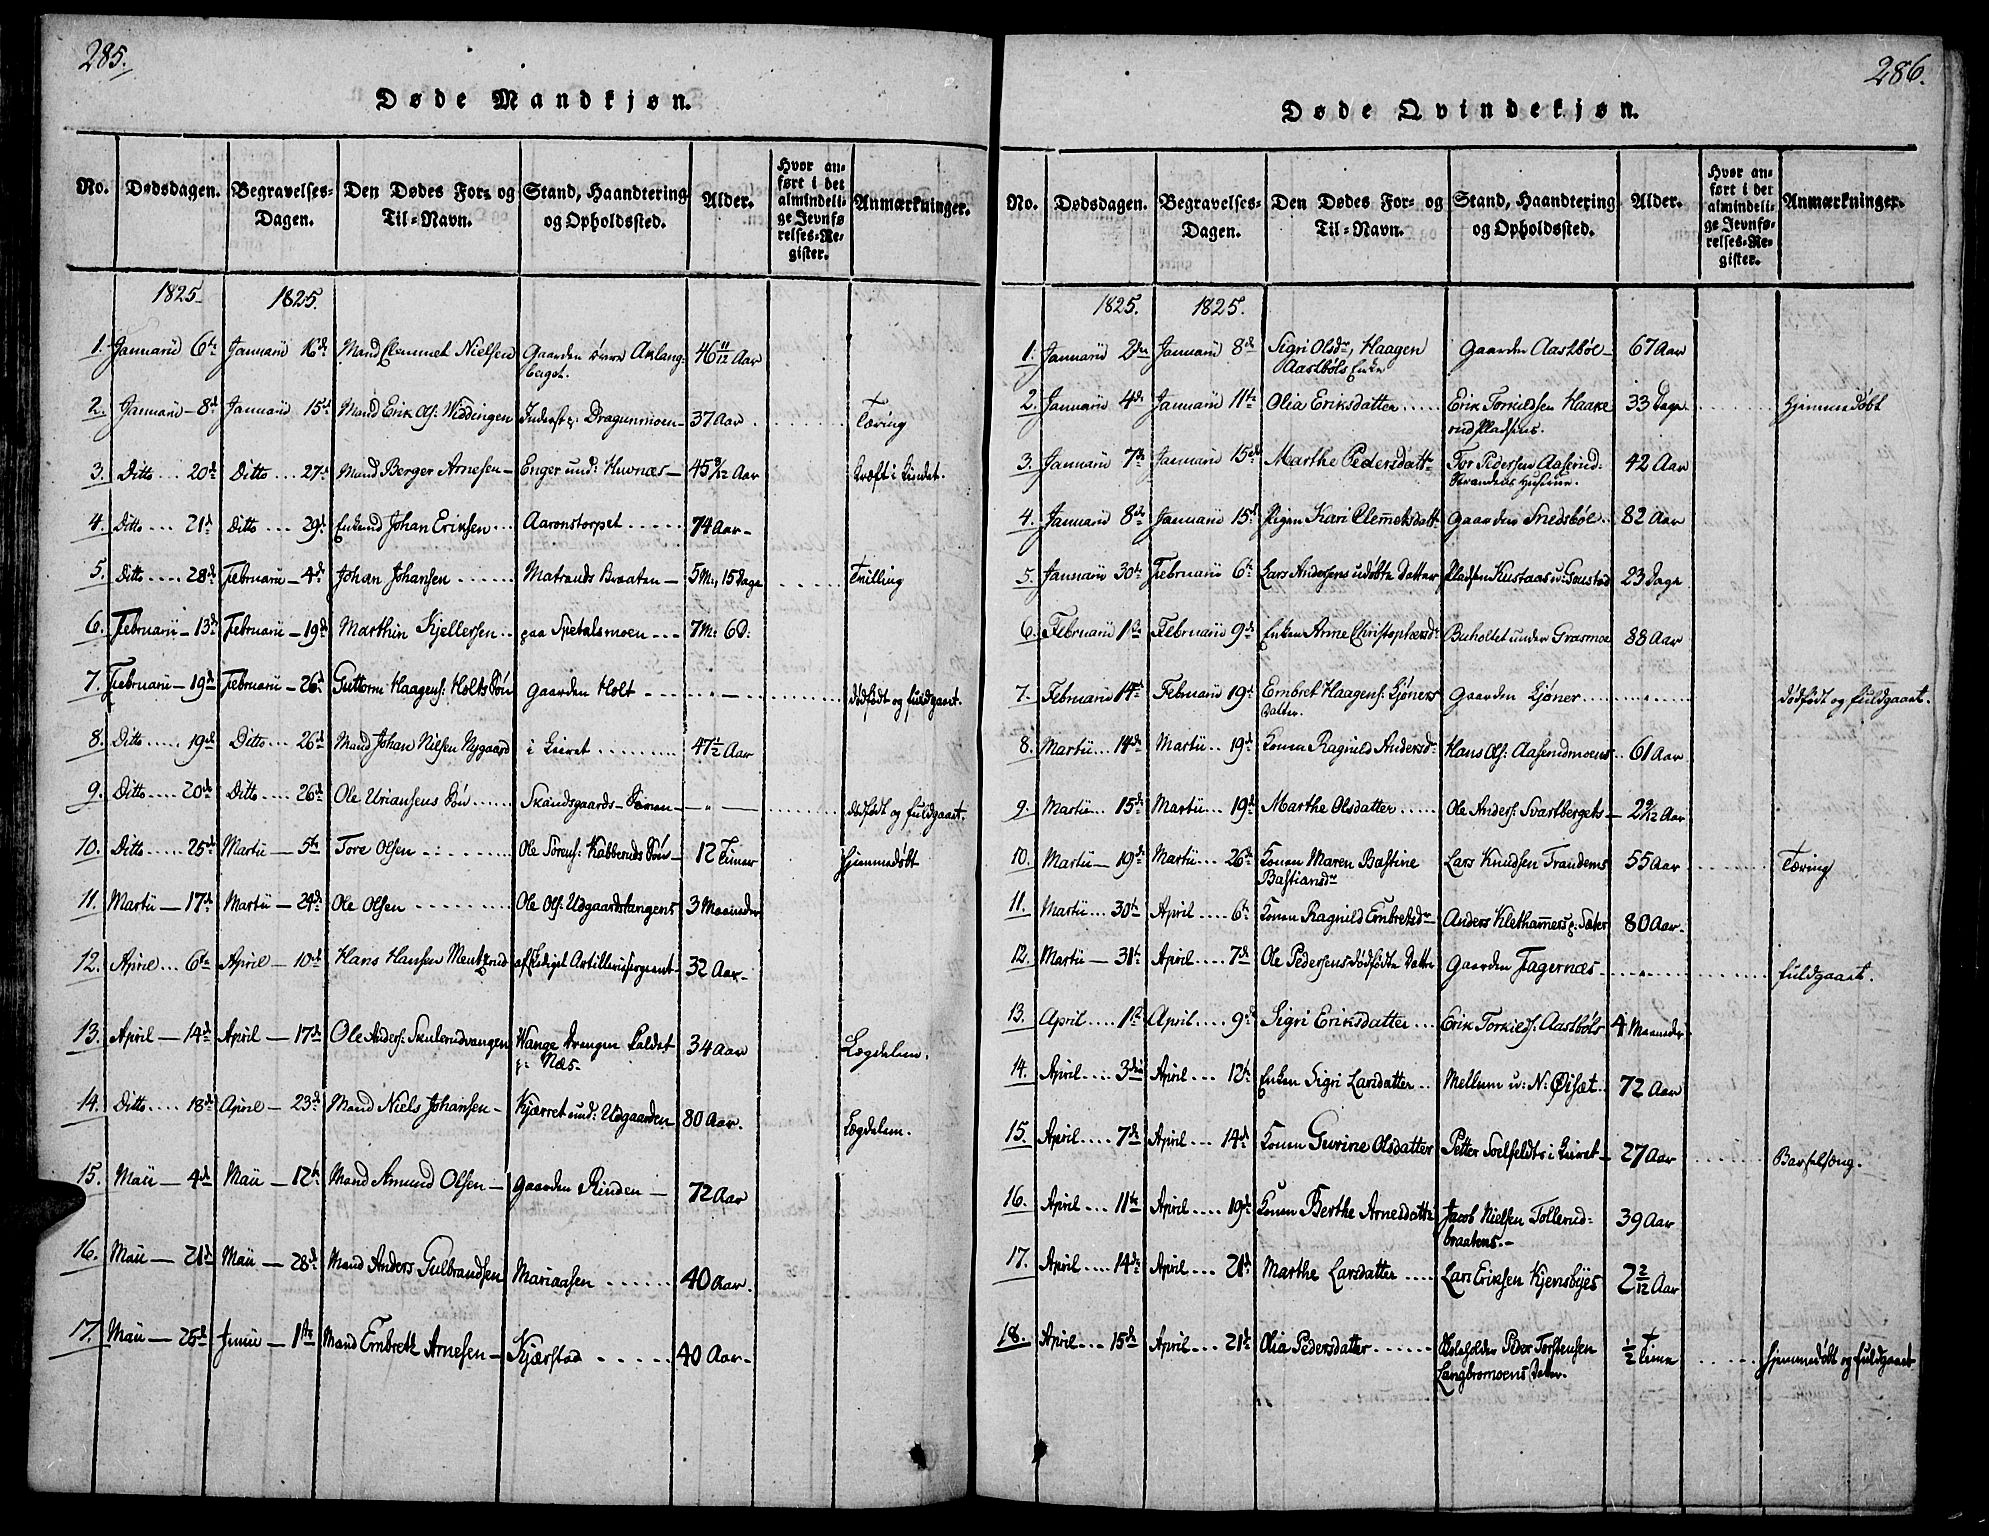 285.
Døde Mandkjøn.
No. Dødsdagen. Begravelses-Dagen. Den Dødes For- og Til-Navn. Stand, Haandtering og Opholdssted. Alder. Hvor anført i det almindelige Jevnførelses-Register. Anmærkninger.
1825. 1825.
1. Januarii 6te Januarii 16de Mand Clemmet Nielsen Gaarden øvre Aklang- 46 11/12 Aar
berget.
2. Januarii — 8de Januarii 15de Mand Erik Ols: Widdingen Inderst p: Dragunmoen — 37 Aar Tæring
3. Ditto ... 20de Ditto ... 27de Mand Berger Arnesen — Enger und: Huvnæs — 45 9/12 Aar Kræft i
4. Ditto ... 21de Ditto ... 29de Enkemd Johan Eriksen ... Aaronstorpet ..... 74 Aar —
5. Ditto .... 28de Februarii — 4de Johan Johansen ...... Matrands Braaten — 5 M:, 15 Dage Tvilling
6. Februarii — 13de Februarii — 19de Marthin Kjellersen .. paa Spetalsmoen ... 7 M: 6 D:
7. Februarii — 19de Februarii — 26de Guttorm Haagens: Holts Søn Gaarden Holt ... — " — dødfødt og fuldgaaet.
8. Ditto ..... 19de Ditto ... 26de Mand Johan Nilsen Nygaard i Leiret ......... 47 1/2 Aar
9. Ditto .... 20de Ditto .... 26de Ole Uriansens Søn ...... Skandsgaards — — " — dødfødt og fuldgaaet.
10. Ditto ..... 25de Martii — 5te Tore Olsen ......... Ole Sørens: Kabberuds Søn — 12 Timer hjemmedøbt
11. Martii — 17de Martii — 24de Ole Olsen ........ Ole Ols: Udgaardstangens 3 Maaneder
12. April ... 6te April — 10de Hans Hansen Mentzrud afskediget Artillerisergeant — 32 Aar —
13. April — 14de April — 17de Ole Anders: Skulerudvangen Wange Drengen kaldet 34 Aar Lægdelem.
p: Næs.
14. Ditto .... 18de April — 23de Mand Niels Johansen — Kjærret und: Udgaarden 80 Aar. Lægdelem.
15. Maii — 4de Maii — 12te Mand Amund Olsen — Gaarden Rinden — 72 Aar
16. Maii — 21de Maii — 28de Mand Anders Gulbrandsen Mariaasen ...... 40 Aar.
17. Maii — 25de Junii — 1ste Mand Embreth Arnesen — Kjærstad ..... 40 Aar —
286.
Døde Qvindekjøn.
No. Dødsdagen. Begravelses-Dagen. Den Dødes For- og Til-Navn. Stand, Haandtering og Opholdssted. Alder. Hvor anført i det almindelige Jevnførelses-Register. Anmærkninger.
1825. 1825.
1. Januarii 2den Januarii 8de Sigri Olsdr, Haagen Gaarden Aastbøl — 67 Aar
Aastbøls Enke
2. Januarii 4de Januarii 11te Olia Eriksdatter ..... Erik Torkildsen Haake- 33 Dage hjemmedøbt
rudpladsens.
3. Januarii 7de Januarii 15de Marthe Pedersdattr Tor Pedersen Aaserud- 42 Aar
Strandens Hustrue.
4. Januarii 8de Januarii 15de Pigen Kari Clemetsdattr Gaarden Snedsbøl .. 82 Aar
5. Januarii 30te Februarii 6te Lars Andersens udøbte Datter Pladsen Kustaas u: Goustad 23 Dage
6. Februarii 1ste Februarii 9de Enken Anne Christophersdr Buholtet under Grasmoe 88 Aar
7. Februarii 14de Februarii 19de Embret Haagens: Gjøners Gaarden Gjøner ..... " dødfødt og fuldgaaet.
Datter.
8. Martii .. 14de Martii .. 19de Konen Ragnild Andersdr Hans Ols: Aaserudmoens .. 61 Aar
9. Martii ... 15de Martii ... 19de Marthe Olsdatter ..... Ole Anders: Svartbergets — 2 9/12 Aar
10. Martii — 19de Martii ... 26de Konen Maren Bastine Lars Knudsen Trandems 55 Aar Tæring
Bastiansdr
11. Martii ... 30te April .... 6te Konen Ragnild Embretsdr Anders Klethammers p: Sæter 80 Aar —
12. Martii — 31te April .... 7de Ole Pedersens dødfødte Datter Gaarden Fagernæs ..... " fuldgaaet.
13. April .... 1ste April .... 9de Sigri Eriksdatter ... Erik Torkilds: Aastbøls 4 Maaneder
14. April .... 3die April .... 12te Enken Sigri Larsdatter .. Mellum u: N: Øiset .. 72 Aar
15. April .... 7de April .... 14de Konen Gurine Olsdatter Petter Soelfeldts i Leiret — 27 Aar Barselseng.
16. April ... 11te April .... 19de Konen Berthe Arnesdattr Jacob Nielsen Tollerud- 39 Aar
braatens. —
17. April ... 14de April .... 21de Marthe Larsdatter .... Lars Eriksen Kjensbyes 2 2/12 Aar
18. April ... 15de April .... 21de Olia Pedersdatter ...... Peder Torstensen 1/2 Time hjemmedøbt og fuldgaaet
Langbromoens Datter.